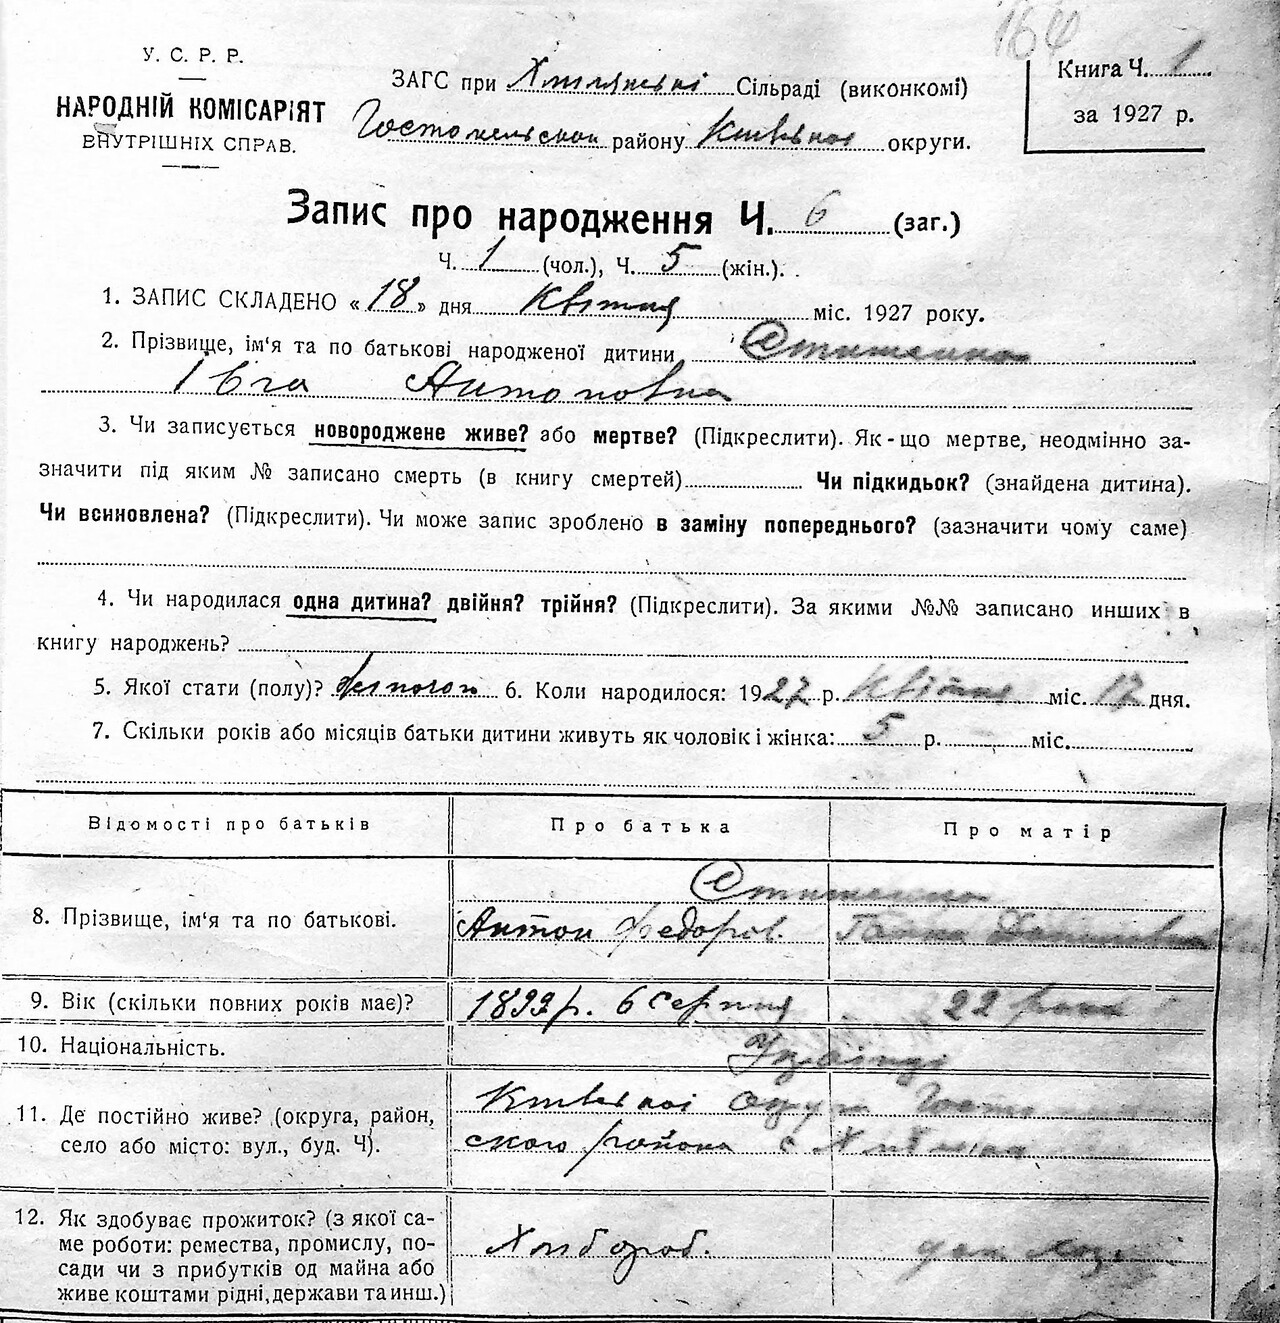 164
У. С. Р. Р.
НАРОДНІЙ КОМІСАРІЯТ
ВНУТРІШНІХ СПРАВ.
ЗАГС при Сільраді (виконкомі)
Гостомельском району Київської округи.
Книга Ч. 1
за 1927 р.
Запис про народження Ч. 6 (заг.)
Ч. 1 (чол.), Ч. 5 (жін.).
1. ЗАПИС СКЛАДЕНО « 18 » дня Квітня міс. 1927 року.
2. Прізвище, ім‘я та по батькові народженої дитини
Івга Антоновна
3. Чи записується новороджене живе? або мертве? (Підкреслити). Як-що мертве, неодмінно за-
значити під яким № записано смерть (в книгу смертей) Чи підкидьок? (знайдена дитина).
Чи всиновлена? (Підкреслити). Чи може запис зроблено в заміну попереднього? (зазначити чому саме)
4. Чи народилася одна дитина? двійня? трійня? (Підкреслити). За якими №№ записано инших в
книгу народжень?
5. Якої стати (полу)? 6. Коли народилося: 1927 р. Квітня міс. 17 дня.
7. Скільки років або місяців батьки дитини живуть як чоловік і жінка: 5 р. міс.
Відомості про батьків
Про батька
Про матір
8. Прізвище, ім‘я та по батькові.
Антон Федоров.
9. Вік (скільки повних років має)?
1899 р. 6 серпня
22 роки
10. Національність.
Українці
11. Де постійно живе? (округа, район,
село або місто: вул., буд. Ч).
Київської округи
ского района с
12. Як здобуває прожиток? (з якої са-
ме роботи: ремества, промислу, по-
сади чи з прибутків од майна або
живе коштами рідні, держави та инш.)
Хлібороб.